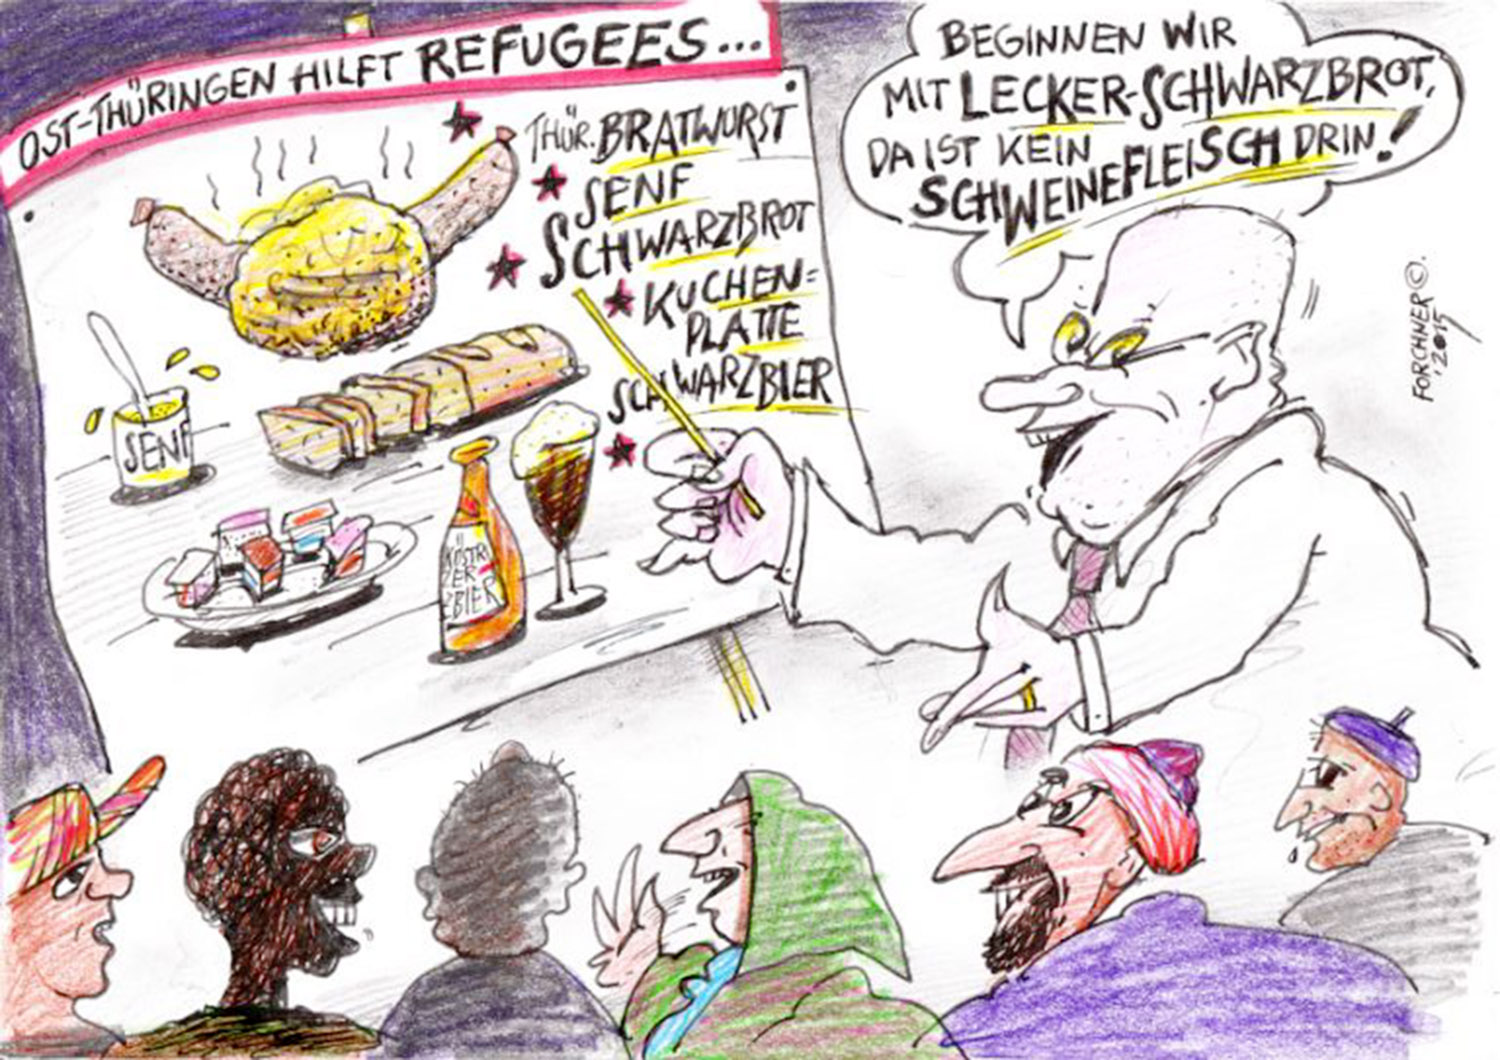 OST-THÜRINGEN HILFT REFUGEES...
THÜR. BRATWURST
SENF
SCHWARZBROT
KUCHEN=
PLATTE
SCHWARZBIER
SENF
KÖSTR
ZER
ZBIER
BEGINNEN WIR
MIT LECKER-SCHWARZBROT,
DA IST KEIN
SCHWEINEFLEISCH DRIN!
FORCHNER ©.
'2015